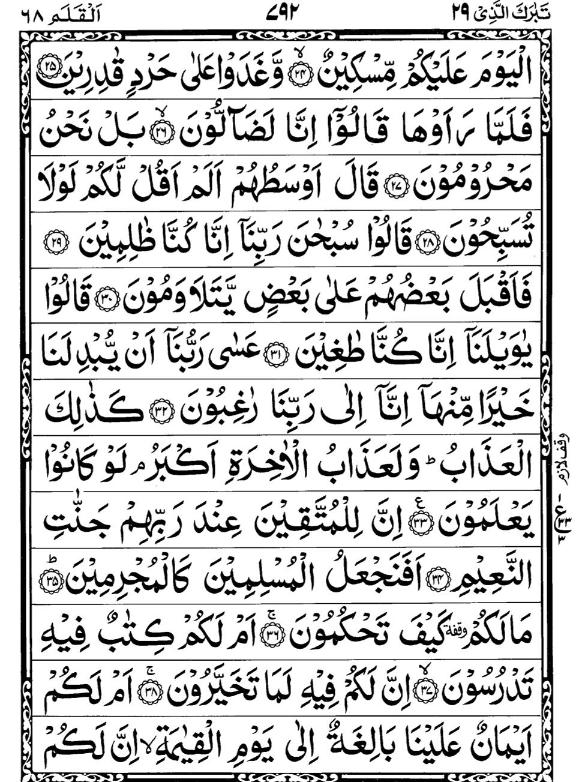 تَبٰرَكَ الَّذِیْ ٢٩ ٧٩٢ اَلْقَلَم ٦٨
الْیَوْمَ عَلَیْكُمْ مِّسْكِیْنٌ ﴿٢٤﴾ۙ وَّغَدَوْا عَلٰی حَرْدٍ قٰدِرِیْنَ ﴿٢٥﴾
فَلَمَّا رَاَوْهَا قَالُوْۤا اِنَّا لَضَآلُّوْنَ ﴿٢٦﴾ۙ بَلْ نَحْنُ
مَحْرُوْمُوْنَ ﴿٢٧﴾ قَالَ اَوْسَطُهُمْ اَلَمْ اَقُلْ لَّكُمْ لَوْلَا
تُسَبِّحُوْنَ ﴿٢٨﴾ قَالُوْا سُبْحٰنَ رَبِّنَاۤ اِنَّا كُنَّا ظٰلِمِیْنَ ﴿٢٩﴾
فَاَقْبَلَ بَعْضُهُمْ عَلٰی بَعْضٍ یَّتَلَاوَمُوْنَ ﴿٣٠﴾ قَالُوْا
یٰوَیْلَنَاۤ اِنَّا كُنَّا طٰغِیْنَ ﴿٣١﴾ عَسٰی رَبُّنَاۤ اَنْ یُّبْدِلَنَا
خَیْرًا مِّنْهَاۤ اِنَّاۤ اِلٰی رَبِّنَا رٰغِبُوْنَ ﴿٣٢﴾ كَذٰلِكَ
الْعَذَابُ ؕ وَلَعَذَابُ الْاٰخِرَةِ اَكْبَرُ ۘ لَوْ كَانُوْا
وقف لازم
یَعْلَمُوْنَ ﴿٣٣﴾۠ اِنَّ لِلْمُتَّقِیْنَ عِنْدَ رَبِّهِمْ جَنّٰتِ
النَّعِیْمِ ﴿٣٤﴾ اَفَنَجْعَلُ الْمُسْلِمِیْنَ كَالْمُجْرِمِیْنَ ﴿٣٥﴾ؕ
مَا لَكُمْ وقفة كَیْفَ تَحْكُمُوْنَ ﴿٣٦﴾ۚ اَمْ لَكُمْ كِتٰبٌ فِیْهِ
تَدْرُسُوْنَ ﴿٣٧﴾ۙ اِنَّ لَكُمْ فِیْهِ لَمَا تَخَیَّرُوْنَ ﴿٣٨﴾ۚ اَمْ لَكُمْ
اَیْمَانٌ عَلَیْنَا بَالِغَةٌ اِلٰی یَوْمِ الْقِیٰمَةِ ۙ اِنَّ لَكُمْ